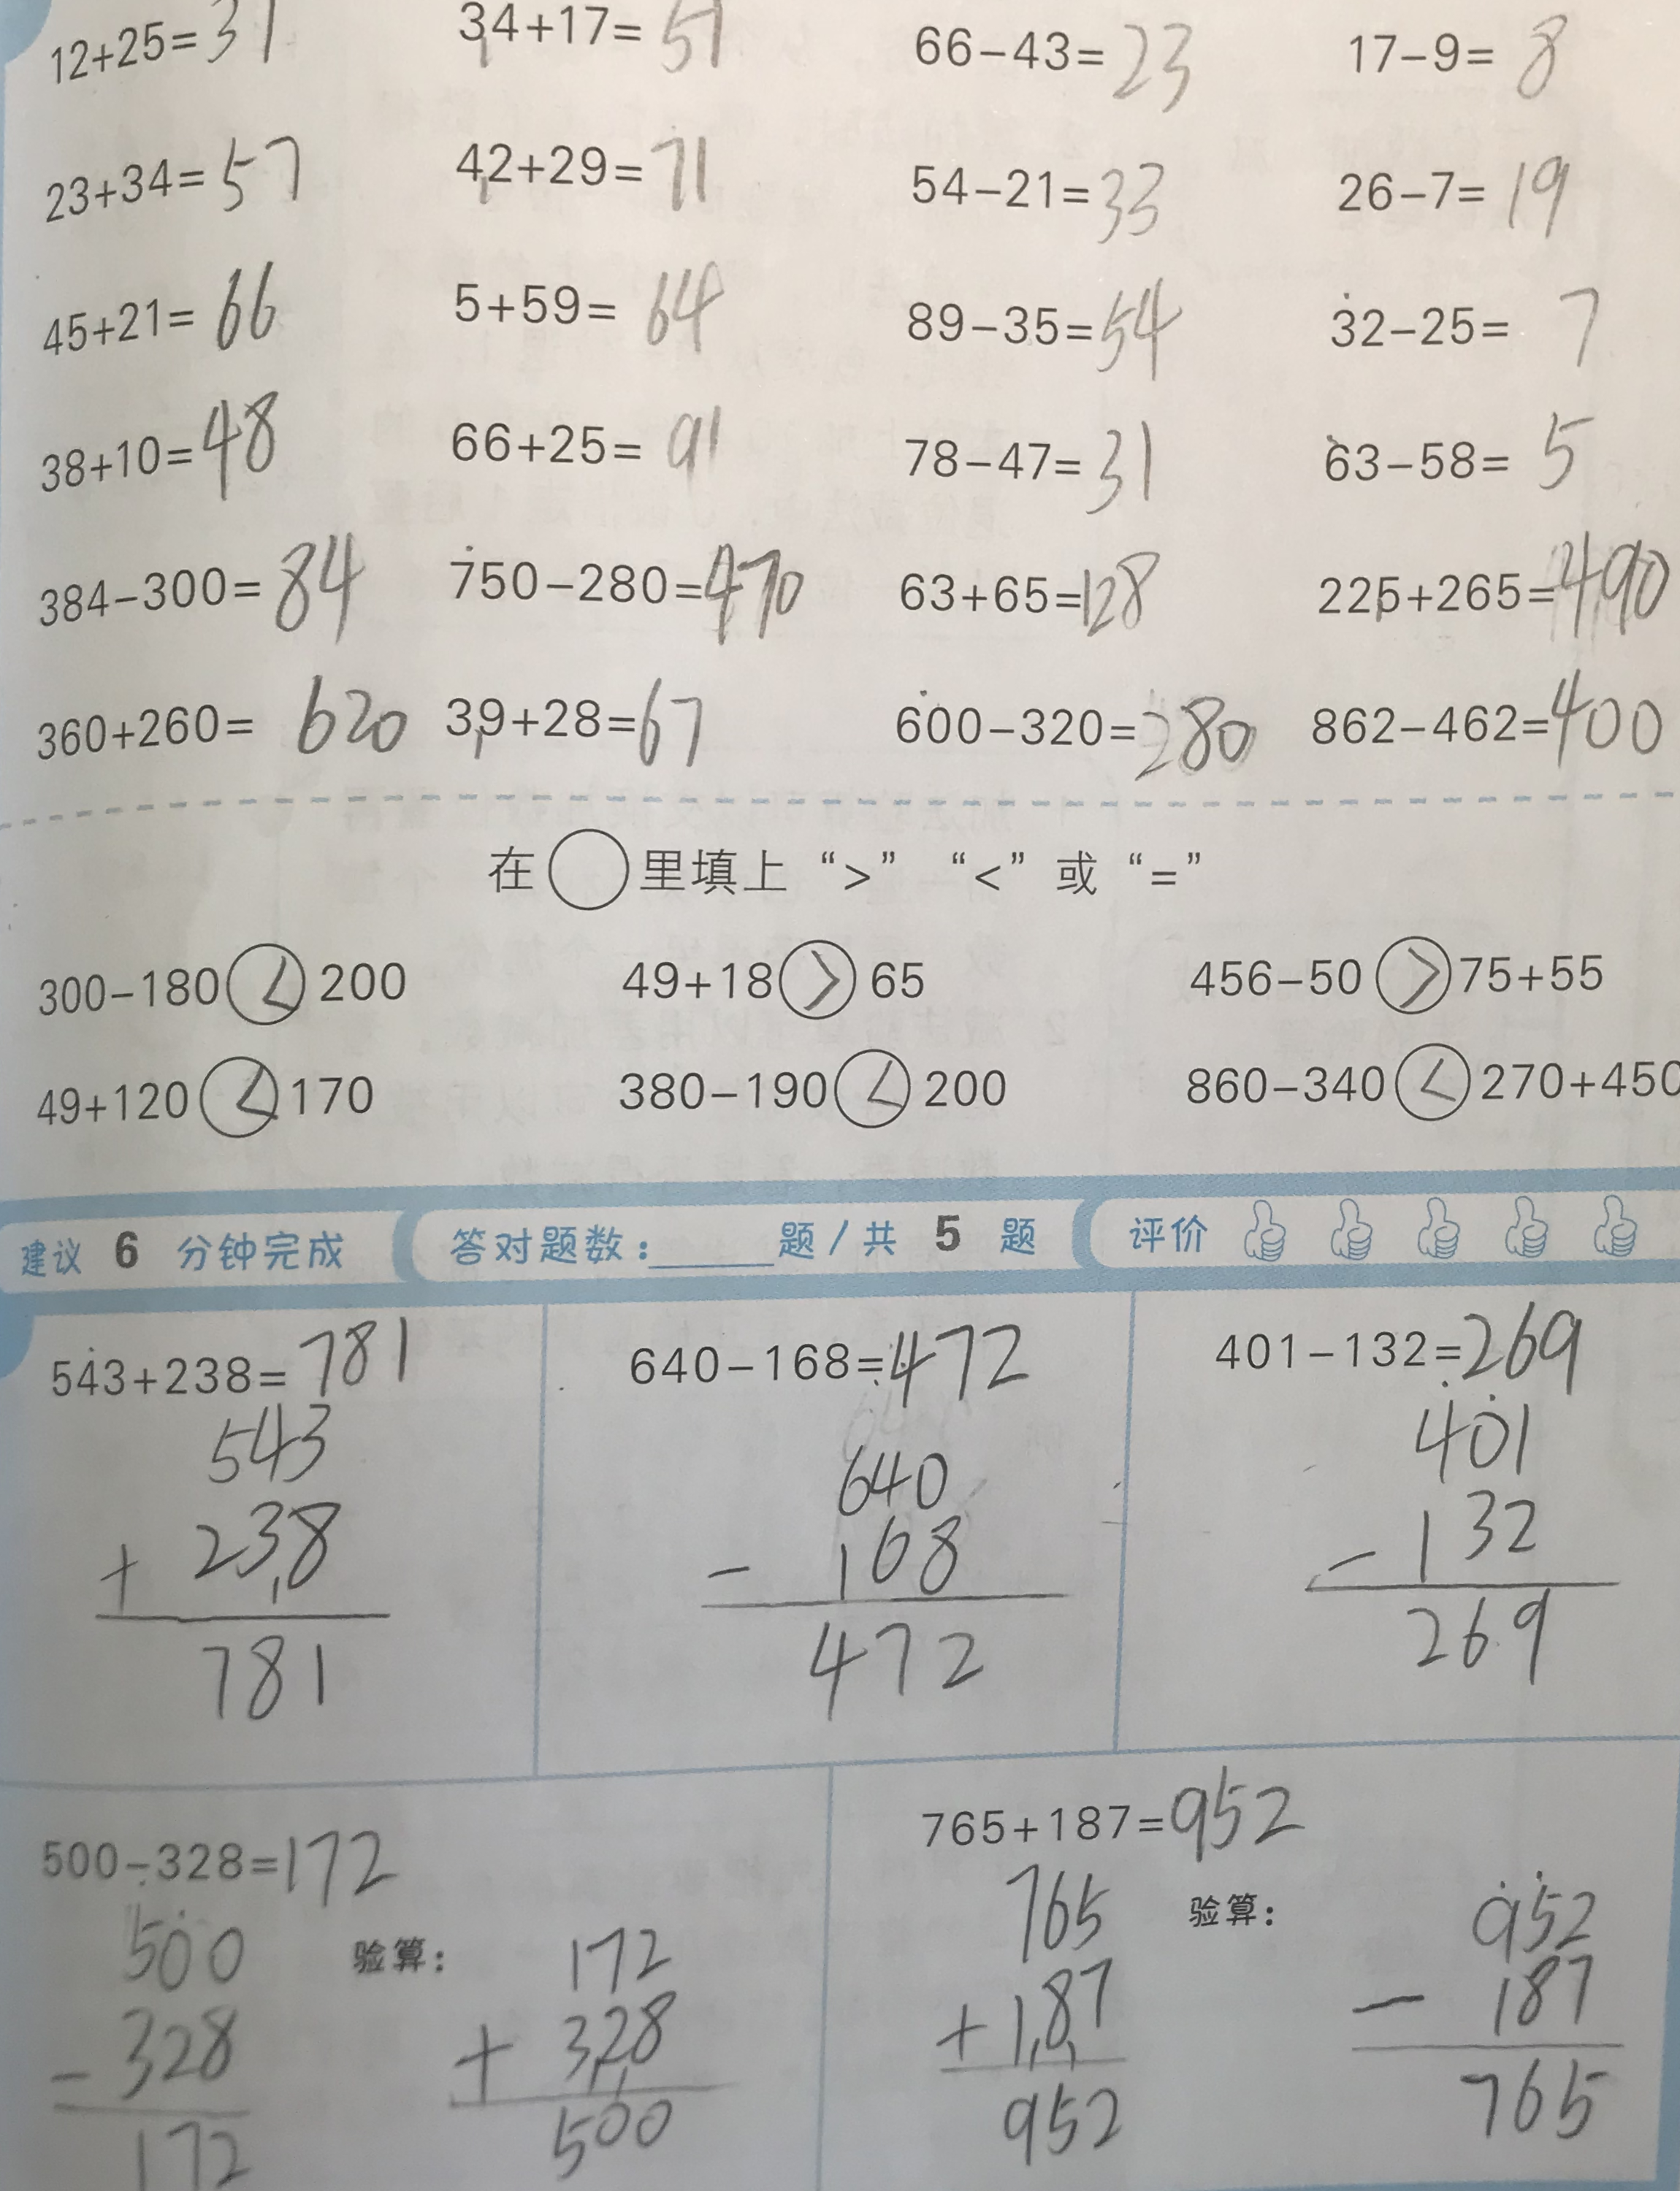 12+25=31 34+17=51 66-43=23 17-9=8
23+34=57 42+29=71 54-21=33 26-7=19
45+21=66 5+59=64 89-35=54 32-25=7
38+10=48 66+25=91 78-47=31 63-58=5
384-300=84 750-280=470 63+65=128 225+265=490
360+260=620 39+28=67 600-320=280 862-462=400
在○里填上“>”“<”或“=”
300-180<200 49+18>65 456-50>75+55
49+120<170 380-190<200 860-340<270+450
建议 6 分钟完成 答对题数:______题/共 5 题 评价
543+238=781 640-168=472 401-132=269
543 640 401
+ 238 - 168 - 132
781 472 269
500-328=172 765+187=952
500 验算: 172 765 验算: 952
- 328 + 328 + 187 - 187
172 500 952 765